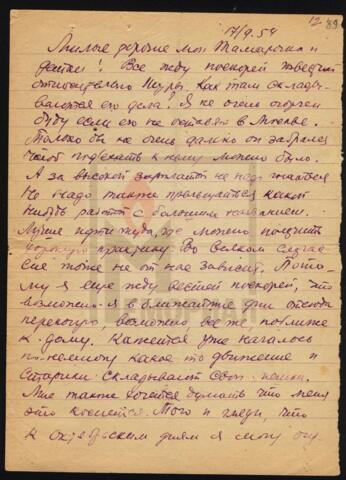 12 89
17/9.54
Милые дорогие мои Тамарочка и
детки! Все жду поскорей известий
относительно Шуры. Как там склады-
ваются его дела? Я не очень огорчен
буду если его не оставят в Москве.
Только бы не очень далеко он забрался
чтоб под'ехать к нему можно было.
А за высокой зарплатой не надо гнаться
Не надо также прельщаться какой
нибудь работой с большим названием.
Лучше идти туда, где можно получить
хорошую практику. Во всяком случае
сие тоже не от нас зависит. Пото-
му я еще жду вестей поскорей, что
возможно я в ближайшие дни отсюда
перекочую, возможно все же, поближе
к дому. Кажется уже началось
по-немногу какое то движение и
старики складывают свои пожитки.
Мне также хочется думать что меня
это коснется. Того и гляди, что
к октябрьским дням я смогу очу-
МЕМОРИАЛ